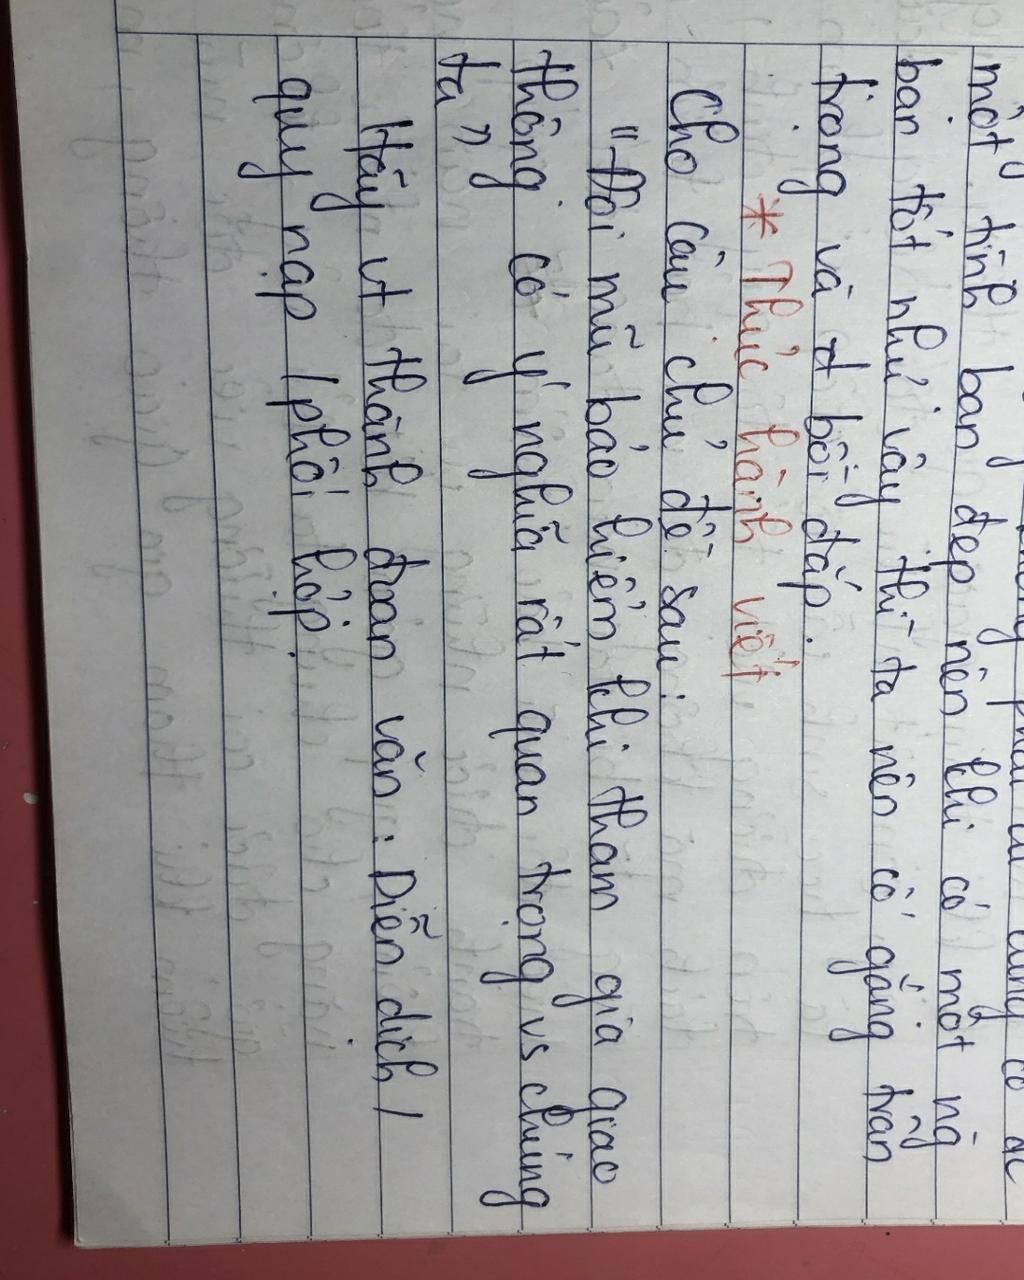 một tình bạn đẹp nên khi có một ng
bạn tốt như vậy thì ta nên cố gắng trân
trọng và bồi đắp.
* Thực hành viết
Cho câu chủ đề sau:
"Đội mũ bảo hiểm khi tham gia giao
thông có ý nghĩa rất quan trọng vs chúng
ta"
Hãy vt thành đoạn văn: Diễn dịch /
quy nạp / phối hợp.